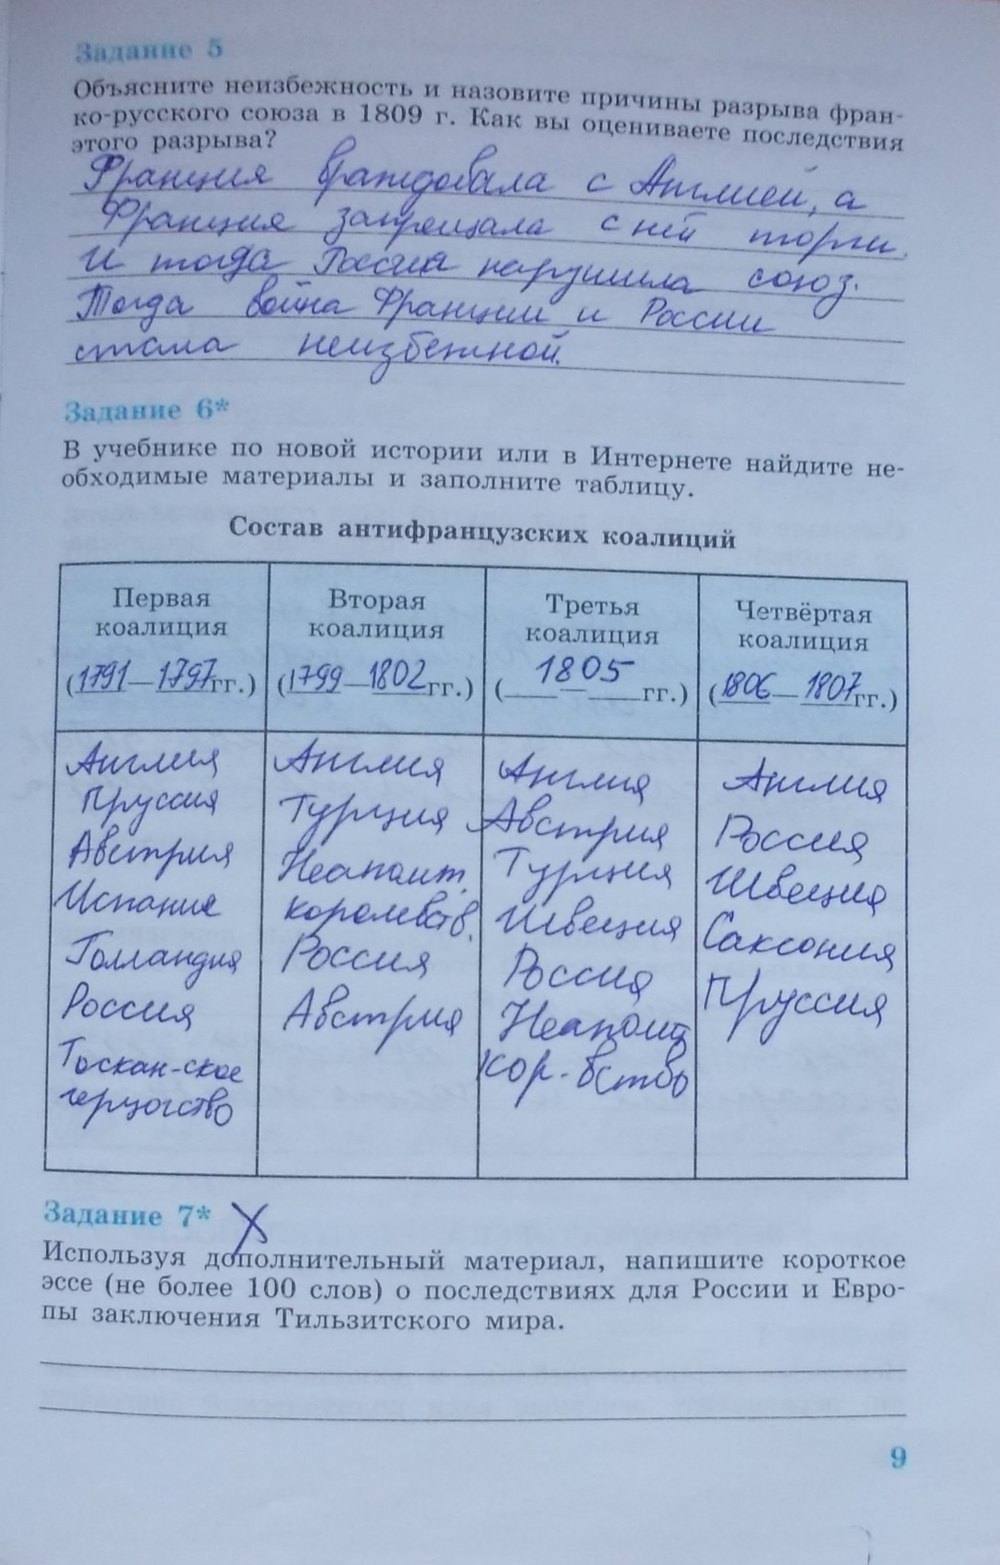 Задание 5
Объясните неизбежность и назовите причины разрыва фран-
ко-русского союза в 1809 г. Как вы оцениваете последствия
этого разрыва?
Франция враждовала с Англией, а
Франция запрещала с ней торги.
И тогда Россия нарушила союз.
Тогда война Франции и России
стала неизбежной.
Задание 6*
В учебнике по новой истории или в Интернете найдите не-
обходимые материалы и заполните таблицу.
Состав антифранцузских коалиций
Первая
коалиция
(1791—1797гг.)
Вторая
коалиция
(1799—1802гг.)
Третья
коалиция
1805
(—гг.)
Четвёртая
коалиция
(1806—1807гг.)
Англия
Пруссия
Австрия
Испания
Голландия
Россия
Тоскан-ское
герцогство
Англия
Турция
Неаполит.
королевств.
Россия
Австрия
Англия
Австрия
Турция
Швеция
Россия
Неаполит
кор-вство
Англия
Россия
Швеция
Саксония
Пруссия
Задание 7* X
Используя дополнительный материал, напишите короткое
эссе (не более 100 слов) о последствиях для России и Евро-
пы заключения Тильзитского мира.
9